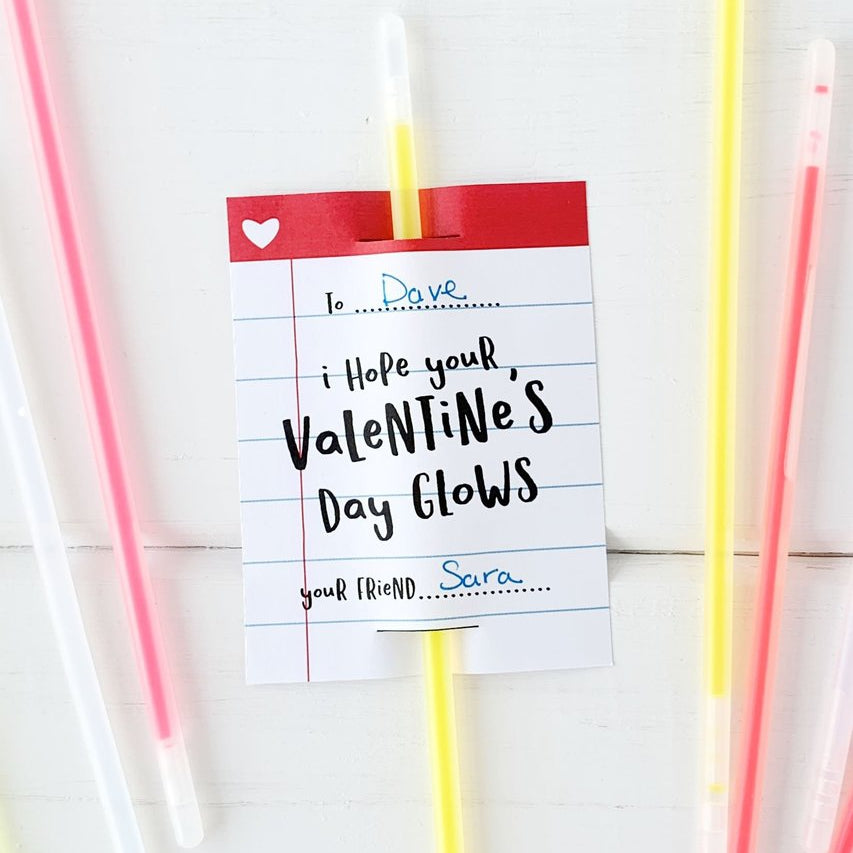 To Dave
i HoPe youR
VaLeNTiNe'S
Day GLoWS
youR FRieND...Sara